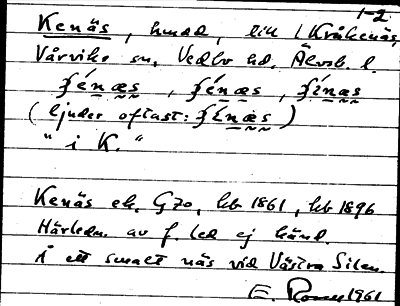 1-2
Kenäs, hmad, till Kråkenäs,
Vårviks sn, Vedbo hd, Älvsb. l.
ʃénæs, ʃénæs, ʃínæs
(ljuder oftast: ʃínæs)
"i K."
Kenäs ek. G70, kb 1861, kb 1896
Härledn. av f. led ej känd.
I ett smalt näs vid Västra Silen.
E. 1961